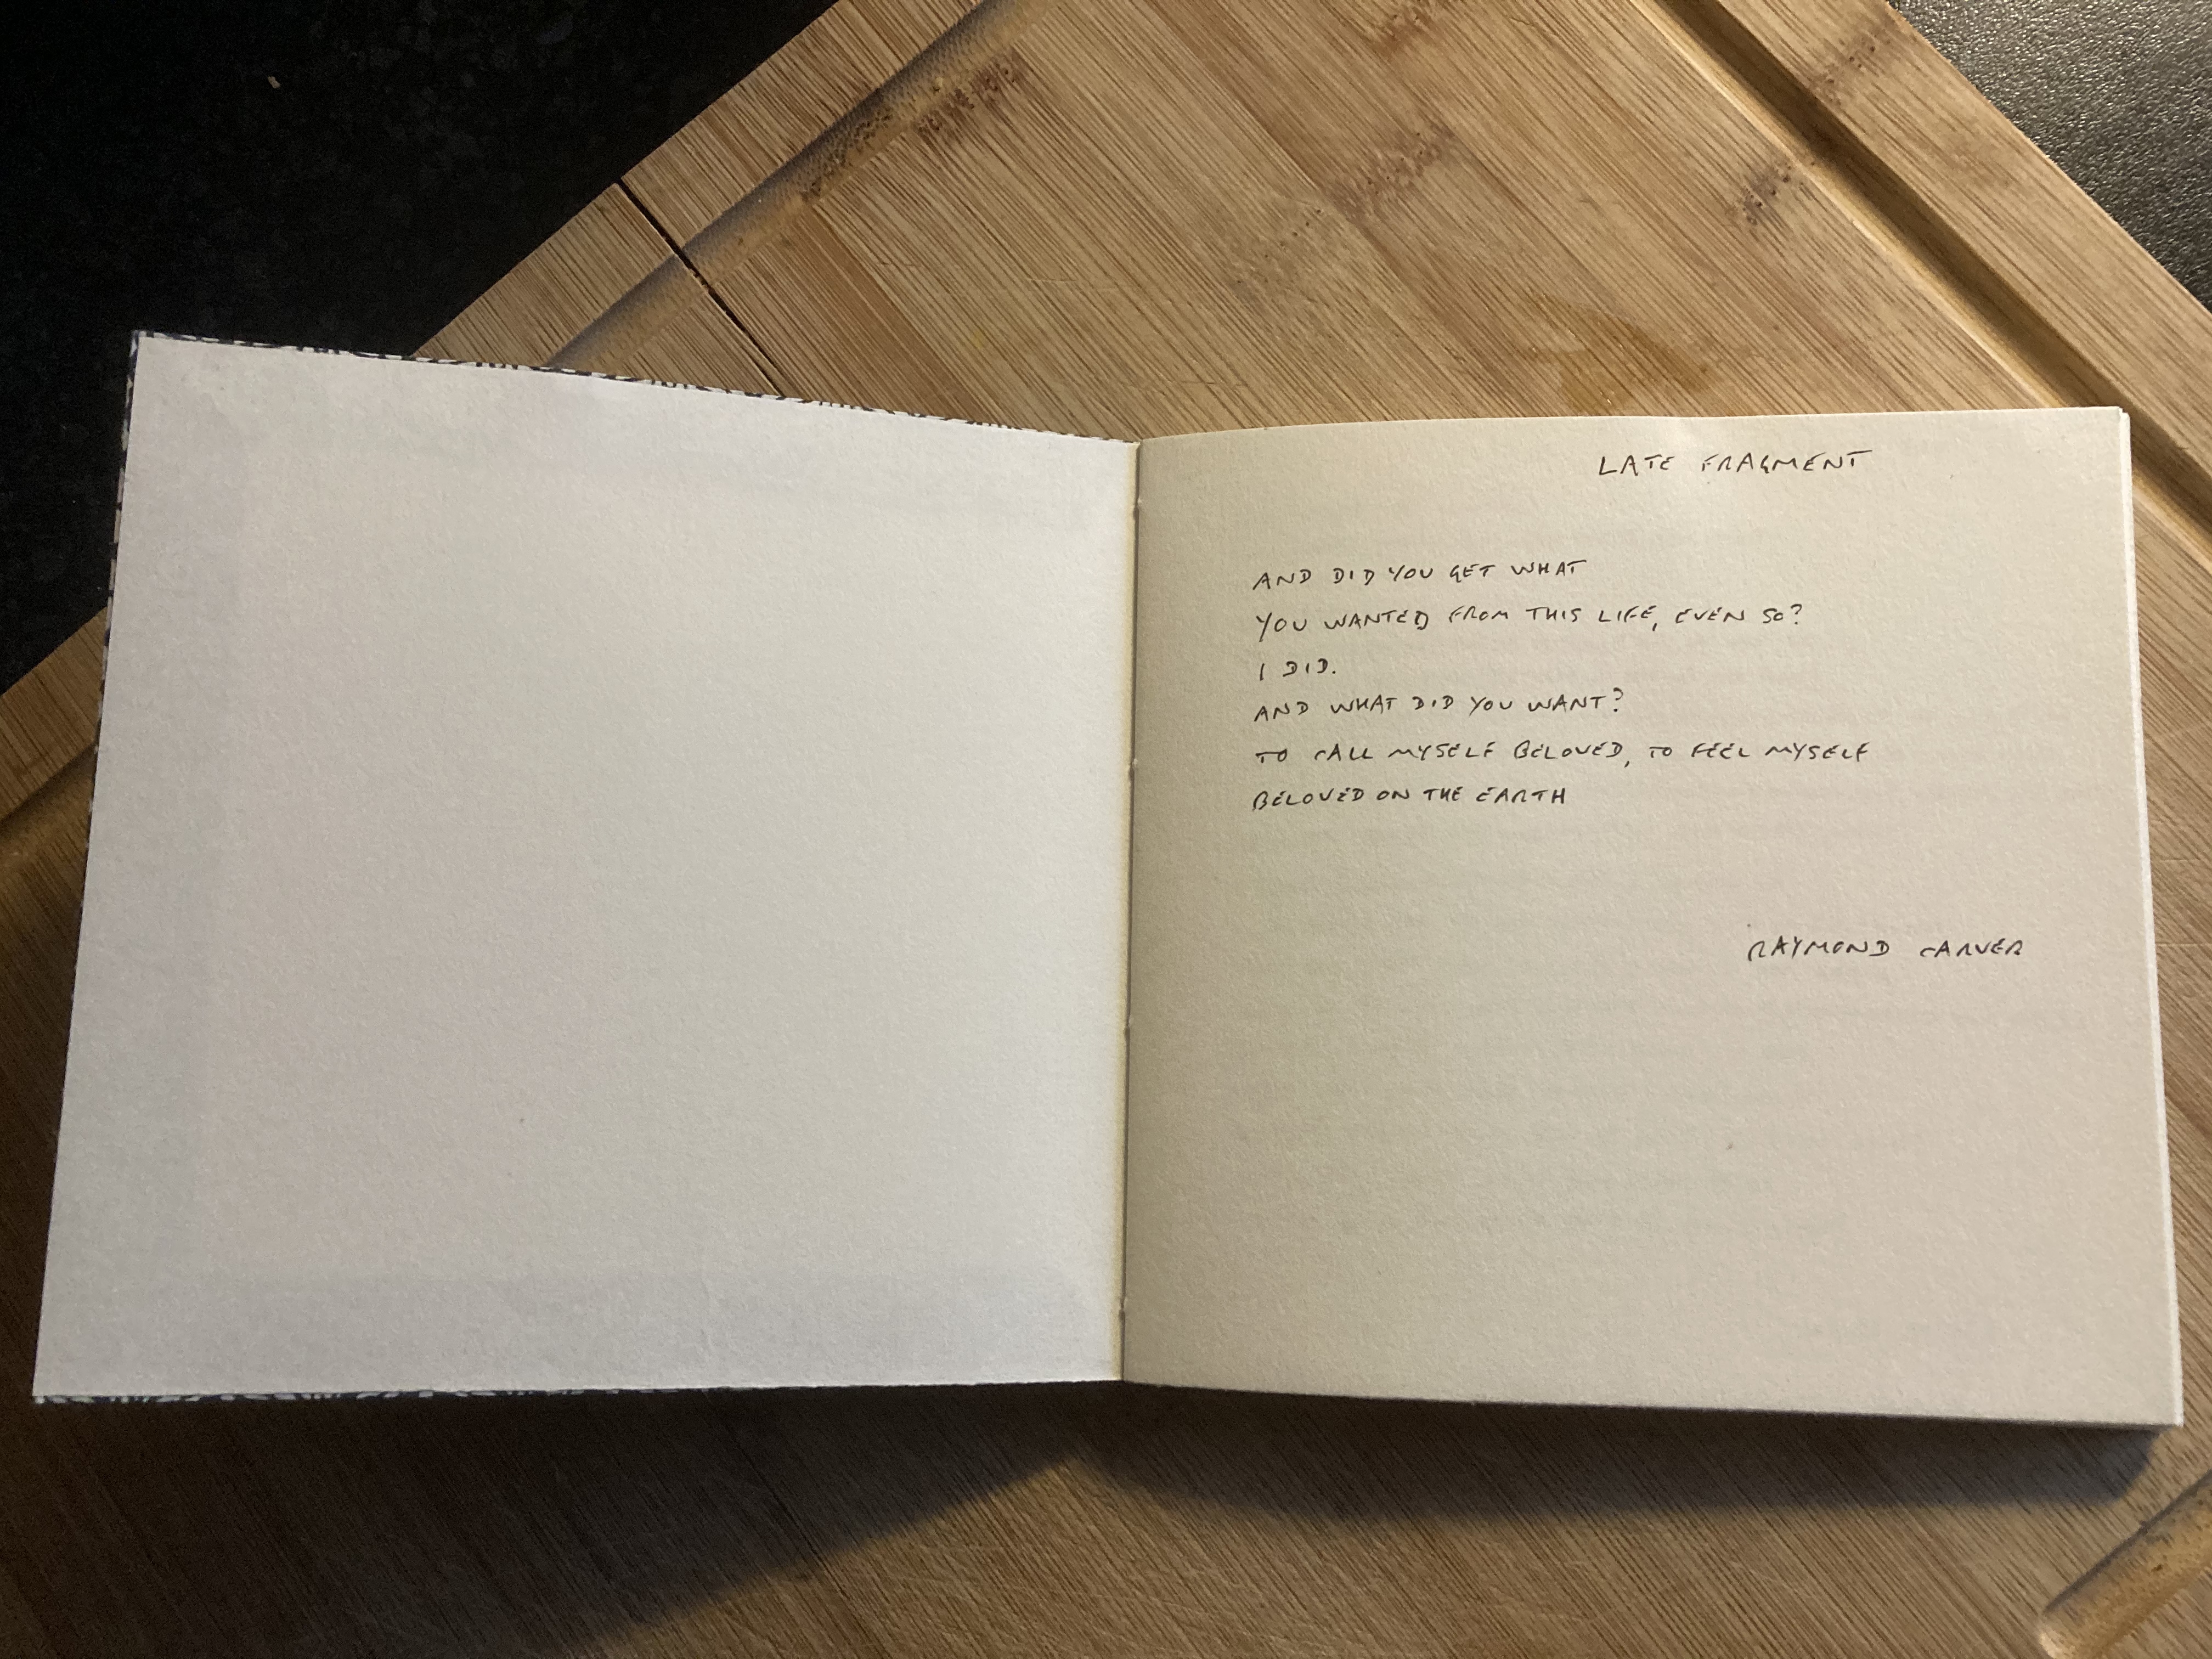 LATE FRAGMENT
AND DID YOU GET WHAT
YOU WANTED FROM THIS LIFE, EVEN SO?
I DID.
AND WHAT DID YOU WANT?
TO CALL MYSELF BELOVED, TO FEEL MYSELF
BELOVED ON THE EARTH
RAYMOND CARVER